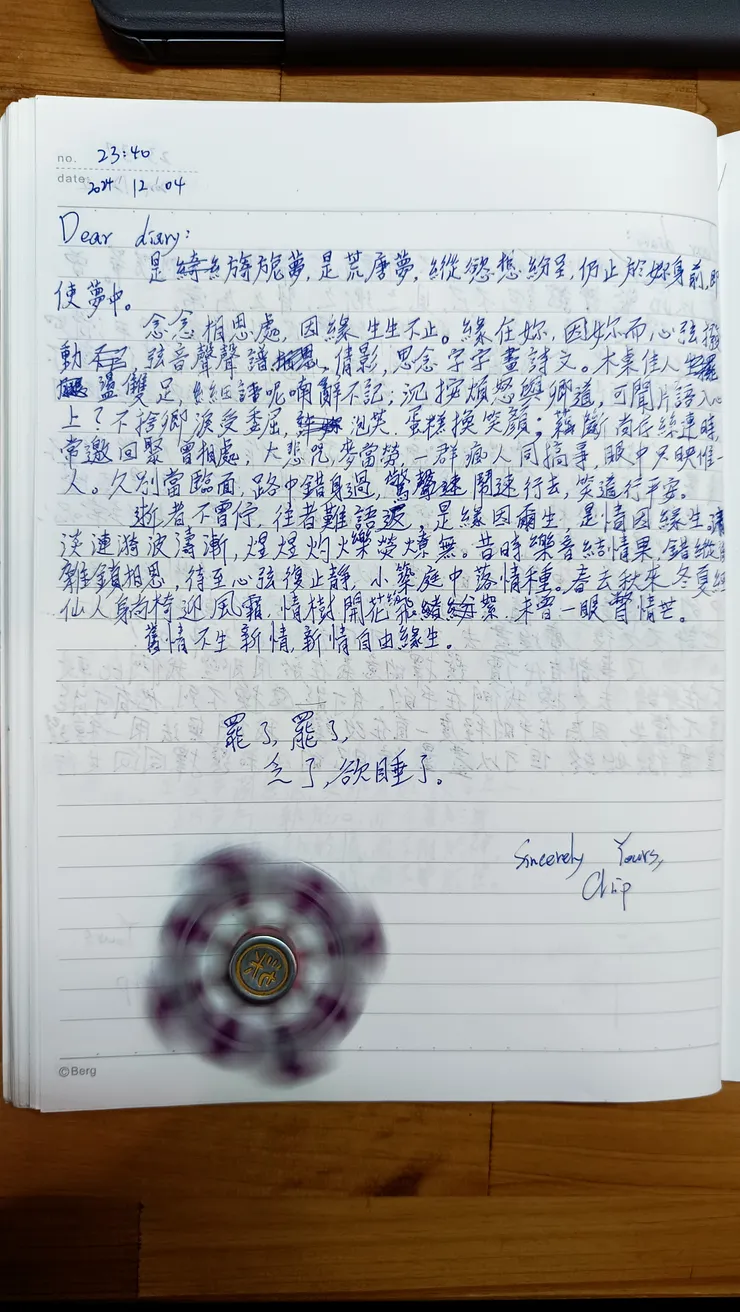 no. 23:40
date: 2024 / 12 / 04
Dear diary:
是綺旖旎夢,是荒唐夢,縱慾想紛呈,仍止於妳身前,即
使夢中。
念念相思處,因緣生生不止。緣在妳,因妳而心弦撥
動,弦音聲聲譜倩影,思念字字畫詩文。木桌佳人
盪雙足,細語呢喃辭不記;沉按煩怒與鄉道,可聞片語入心
上?不捨卿淚受委屈,泡芙、蛋糕換笑顏;藕斷尚存絲連時,
常邀回聚曾相處,大悲咒,麥當勞,一群瘋人同搞事,眼中只映惟一
人。久別當臨面,路中錯身過,驚聲速鬧速行去,笑道行平安。
逝者不曾停,往者難語返,是緣因爾生,是情因緣生。
淡漣漪波濤漸,煌煌灼爍熒燻無。昔時樂音結情果,錯縱
離鎖相思,待至心弦復止靜,小築庭中落情種。春去秋來冬夏經
仙人身向椅迎風霜,情樹開花綾紛絮,未曾一眼瞥情芒。
舊情不生新情,新情自由緣生。
罷了,罷了,
念了,欲睡了。
Sincerely Yours,
Chip
©Berg